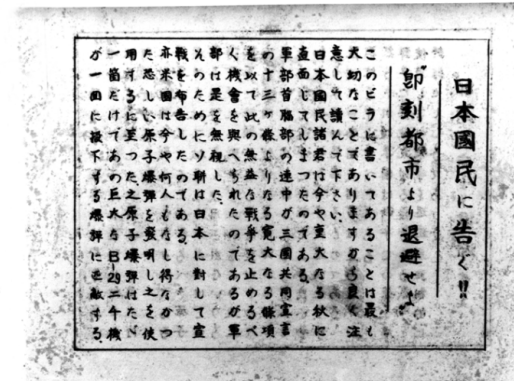 日本國民に告ぐ!!
即刻都市より退避せよ
このビラに書いてあることは最も
大切なことでありますから良く注
意して讀んで下さい。
日本國民諸君は今や重大なる秋に
直面してしまつたのである。
軍部首脳部の連中が三國共同宣言
の十三ヶ條よりなる寛大なる條項
を以て此の無益な戦争を止めるべ
く機會を與へられたのであるが軍
部は是を無視した。
そのためにソ聯は日本に對して宣
戦を布告したのである。
亦米國は今や何人もなし得なかつ
た恐しい原子爆弾を發明し之を使
用するに至つた之原子爆弾はたゞ
一箇だけであの巨大なB-29二千機
が一回に投下する爆弾に匹敵する